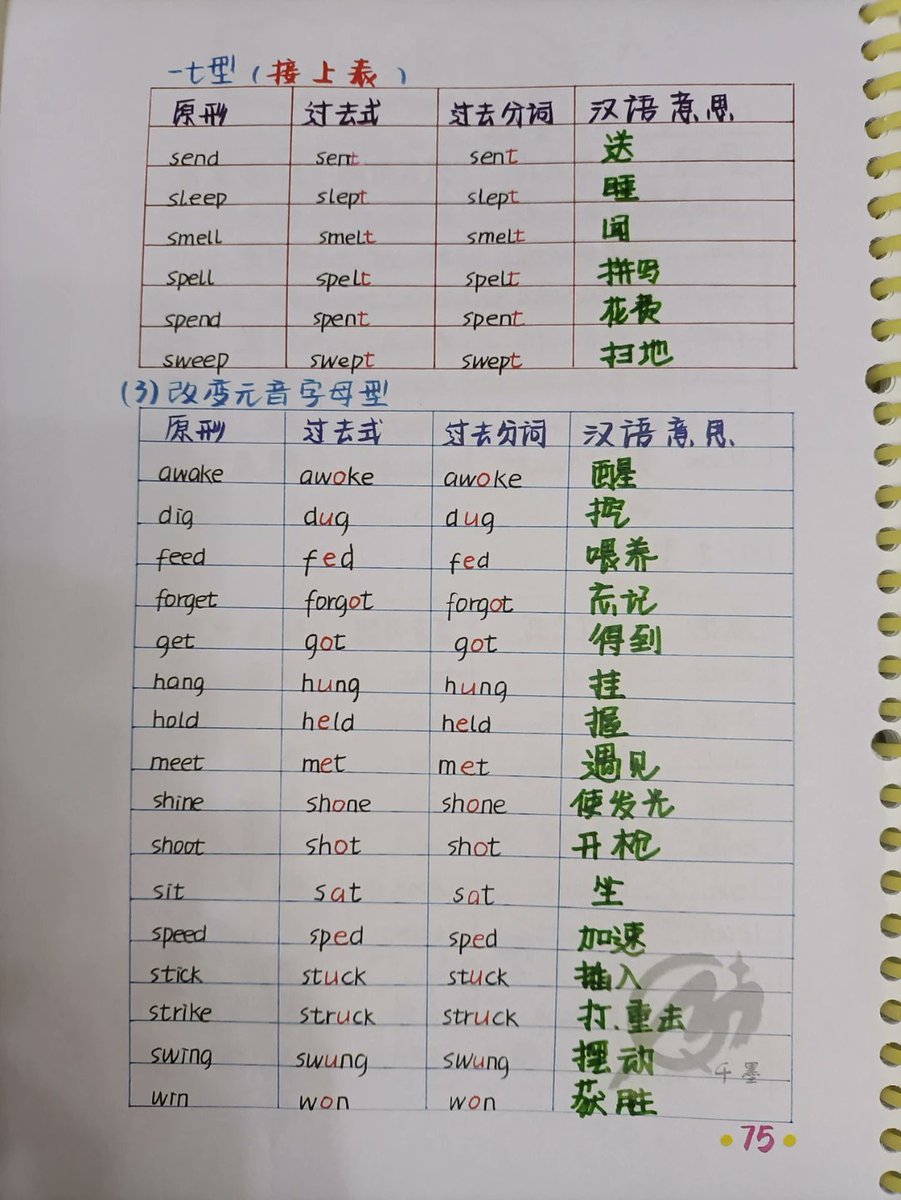 -t型（接上表）
原形 过去式 过去分词 汉语意思
send sent sent 送
sleep slept slept 睡
smell smelt smelt 闻
spell spelt spelt 拼写
spend spent spent 花费
sweep swept swept 扫地
(3)改变元音字母型
原形 过去式 过去分词 汉语意思
awake awoke awoke 醒
dig dug dug 挖
feed fed fed 喂养
forget forgot forgot 忘记
get got got 得到
hang hung hung 挂
hold held held 握
meet met met 遇见
shine shone shone 使发光
shoot shot shot 开枪
sit sat sat 坐
speed sped sped 加速
stick stuck stuck 插入
strike struck struck 打.重击
swing swung swung 摆动
win won won 获胜
千墨
75